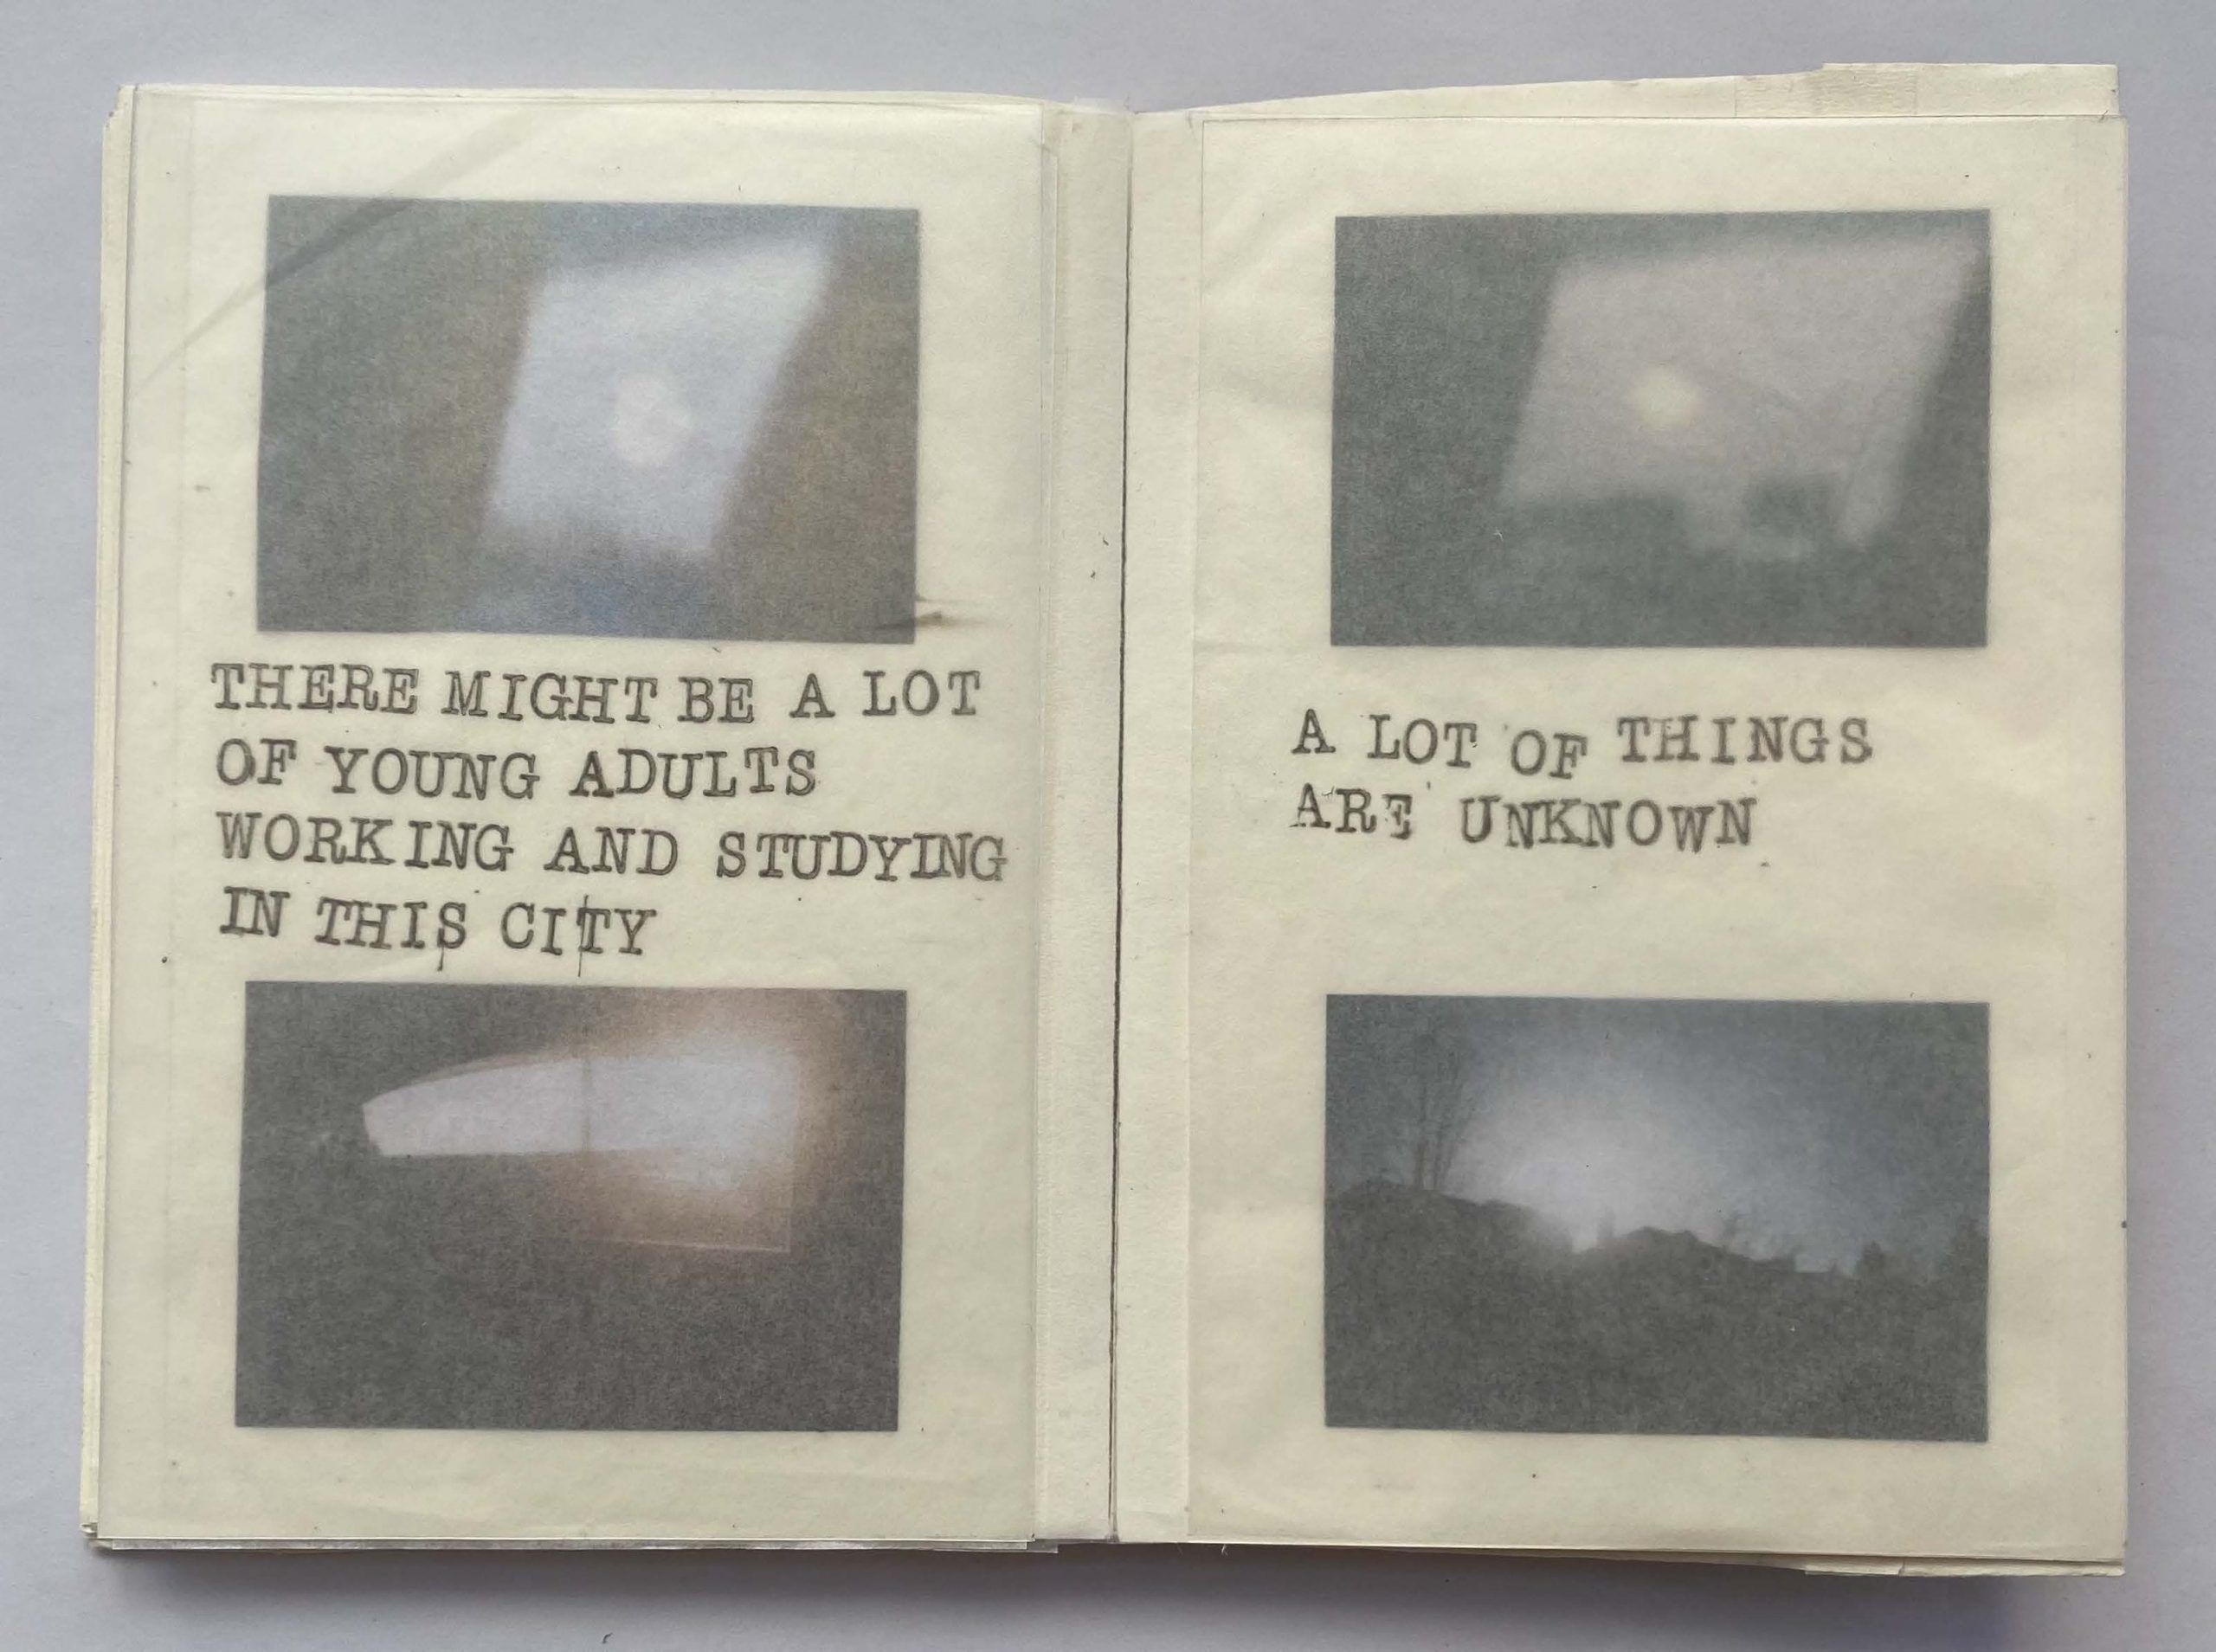 THERE MIGHT BE A LOT
OF YOUNG ADULTS
WORKING AND STUDYING
IN THIS CITY
A LOT OF THINGS
ARE UNKNOWN